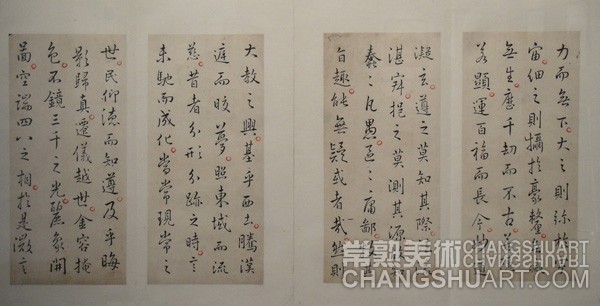 力而無下大之則弥於宇
宙細之則攝於豪釐
無生歷千劫而不古若
若顯運百福而長今
凝玄遵之莫知其際
湛寂挹之莫測其源
蠢〻凡愚區〻庸鄙投其
旨趣能無疑或者哉然則
大教之興基乎西土騰漢
庭而皎夢照東域而流
慈昔者分形分跡之時言
未馳而成化當常現常之
世民仰德而知遵及乎晦
影歸真遷儀越世金容掩
色不鏡三千之光麗象開
圖空端四八之相於是微言
常熟美术 CHANGSHUART
CHANGSHUART.COM